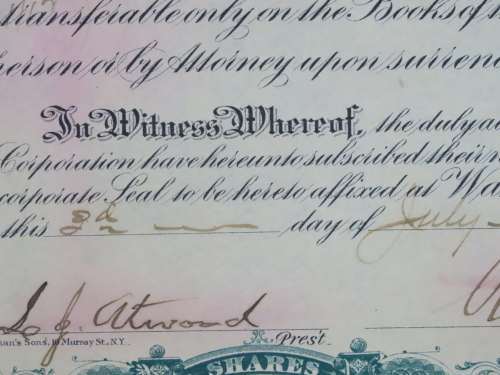 transferable only on the Books of
person or by Attorney upon surren
In Witness Whereof, the duly au
Corporation have hereunto subscribed their n
corporate Seal to be hereto affixed at Wa
this 3d day of July
L. J. Atwood
Pres't.
man's Sons, 16 Murray St., N.Y.
SHARES